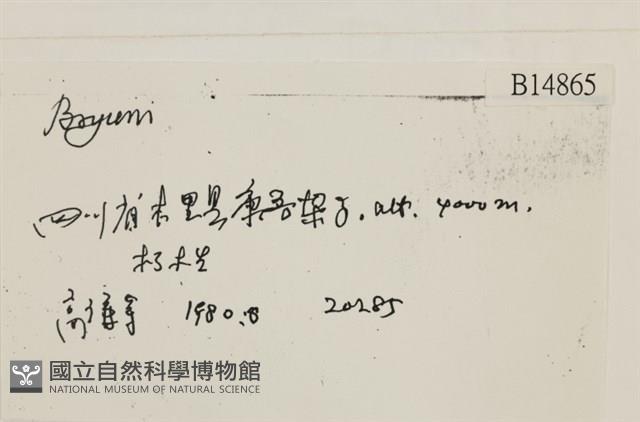 B14865
四川省木里县康吾梁子. alt. 4000m.
朽木生
高謙等 1980.8 20285
國立自然科學博物館
NATIONAL MUSEUM OF NATURAL SCIENCE